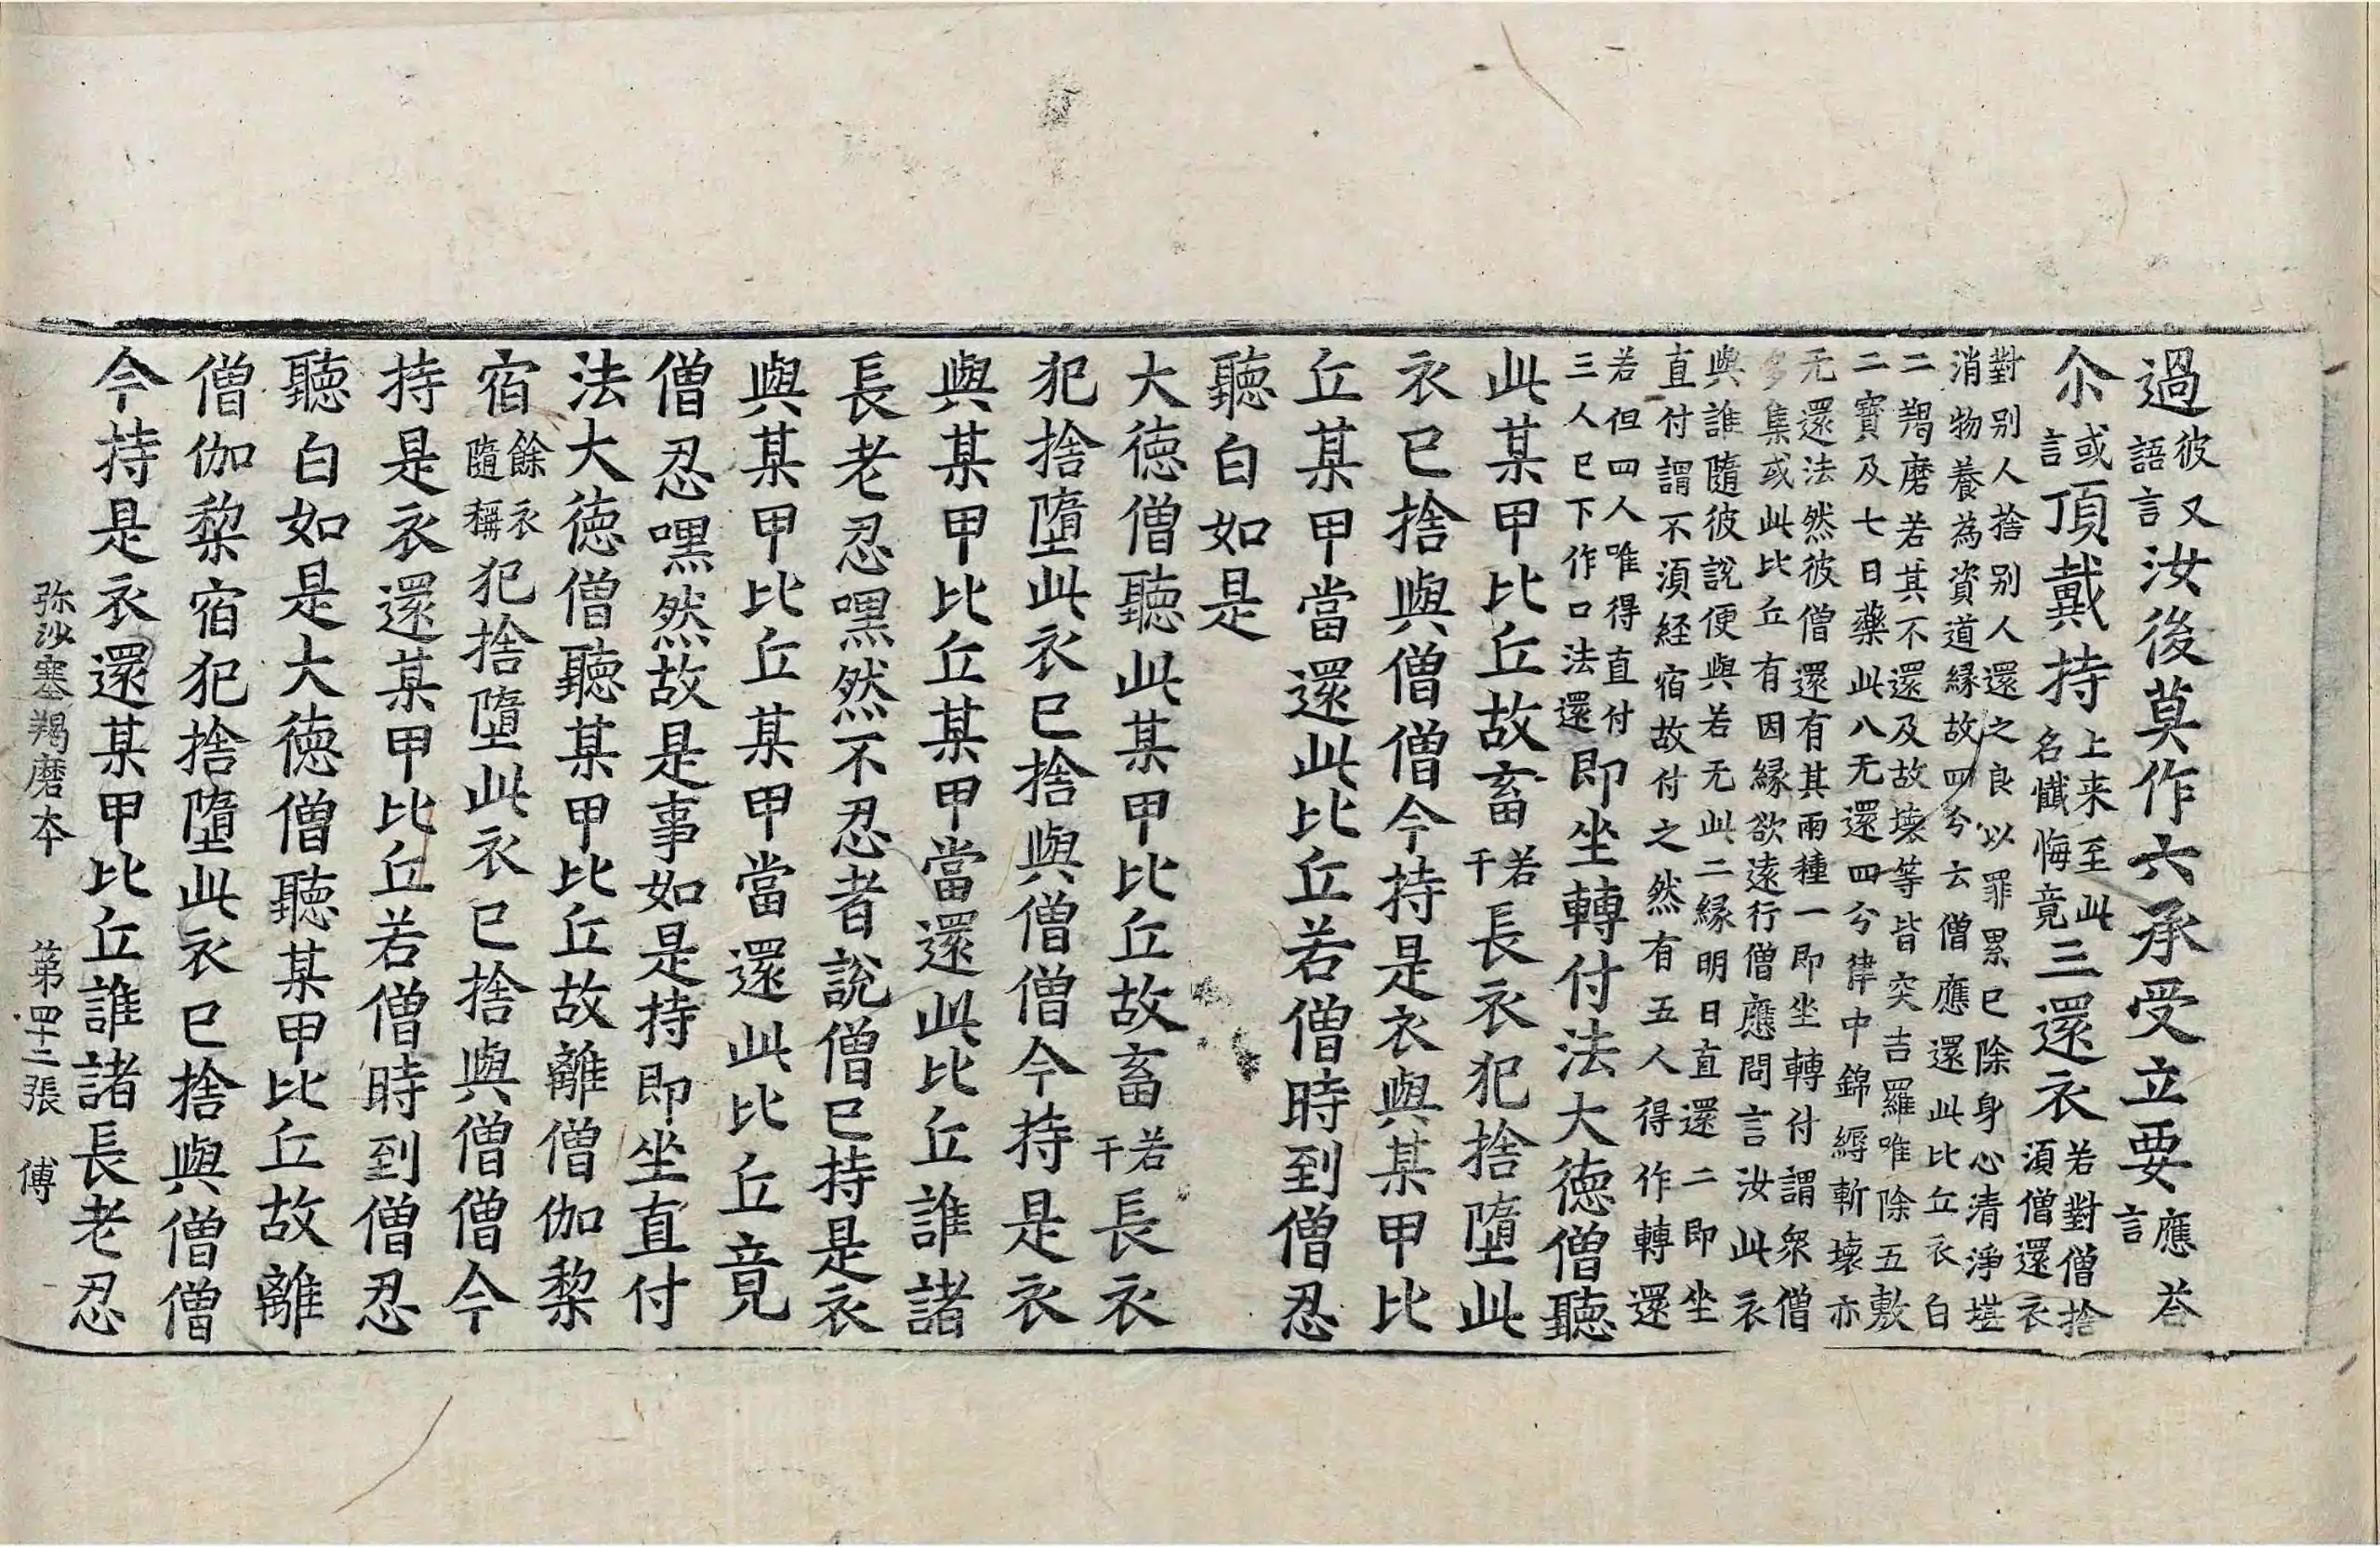 過彼又語言汝後莫作六承受立要應荅言
尒或言頂戴持上来至此名懺悔竟三還衣若對僧捨湏僧還衣
對別人捨別人還之良以罪累已除身心清淨堪
消物養為資道縁故四分云僧應還此比丘衣白
二羯磨若其不還及故壊等皆突吉羅唯除五敷
二寳及七日藥此八无還四分律中錦縟斬壊亦
无還法然彼僧還有其兩種一即坐轉付謂衆僧
多集或此比丘有因縁欲遠行僧應問言汝此衣
與誰隨彼說便與若无此二縁明日直還二即坐
直付謂不湏経宿故付之然有五人得作轉還
若但四人唯得直付三人已下作口法還即坐轉付法大徳僧聽
此某甲比丘故畜若干長衣犯捨墮此
衣已捨與僧僧今持是衣與某甲比
丘某甲當還此比丘若僧時到僧忍
聽白如是
大徳僧聽此某甲比丘故畜若干長衣
犯捨墮此衣已捨與僧僧今持是衣
與某甲比丘某甲當還此比丘誰諸
長老忍嘿然不忍者說僧已持是衣
與某甲比丘某甲當還此比丘竟
僧忍嘿然故是事如是持即坐直付
法大徳僧聽某甲比丘故離僧伽棃
宿餘衣隨稱犯捨墮此衣已捨與僧僧今
持是衣還某甲比丘若僧時到僧忍
聽白如是大徳僧聽某甲比丘故離
僧伽棃宿犯捨墮此衣已捨與僧僧
今持是衣還某甲比丘誰諸長老忍
弥沙塞羯磨本　第四十二張　傅